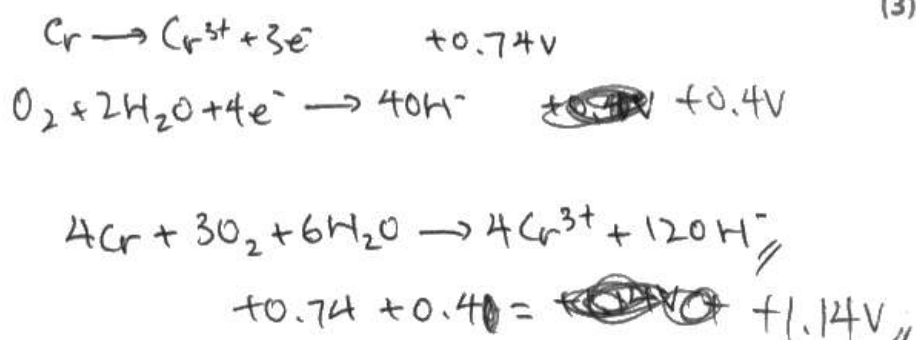 (3)
Cr → Cr³⁺ + 3e⁻ +0.74V
O₂ + 2H₂O + 4e⁻ → 4OH⁻ +0.4V
4Cr + 3O₂ + 6H₂O → 4Cr³⁺ + 12OH⁻
+0.74 +0.4 = +1.14V